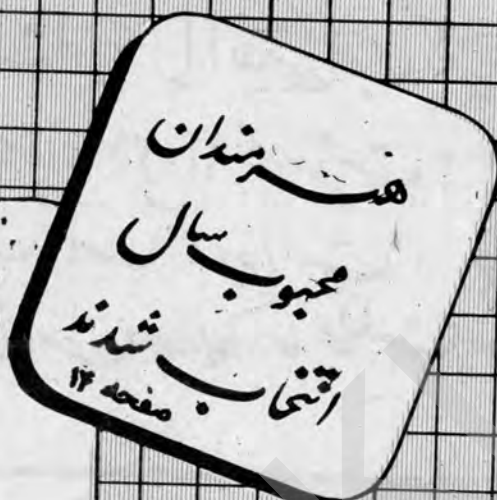 هنرمندان
محبوب سال
انتخاب شدند
صفحه ۱۴